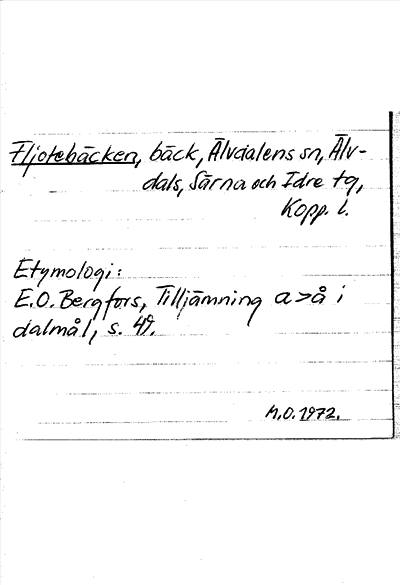 Fljotebäcken, bäck, Älvdalens sn, Älv-
dals, Särna och Idre tg,
Kopp. l.
Etymologi:
E.O. Bergfors, Tilljämning a>å i
dalmål, s. 49.
M.O. 1972.